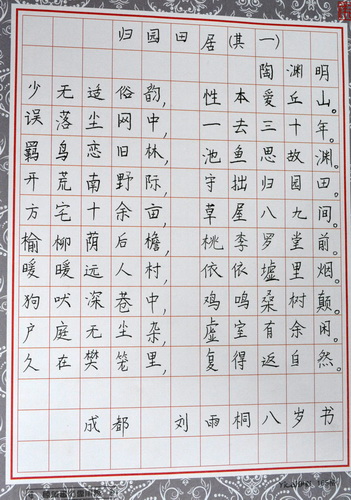 归园田居(其一)
陶渊明
少无适俗韵，性本爱丘山。
误落尘网中，一去三十年。
羁鸟恋旧林，池鱼思故渊。
开荒南野际，守拙归园田。
方宅十余亩，草屋八九间。
榆柳荫后檐，桃李罗堂前。
暧暧远人村，依依墟里烟。
狗吠深巷中，鸡鸣桑树颠。
户庭无尘杂，虚室有余闲。
久在樊笼里，复得返自然。
成都 刘雨桐八岁书